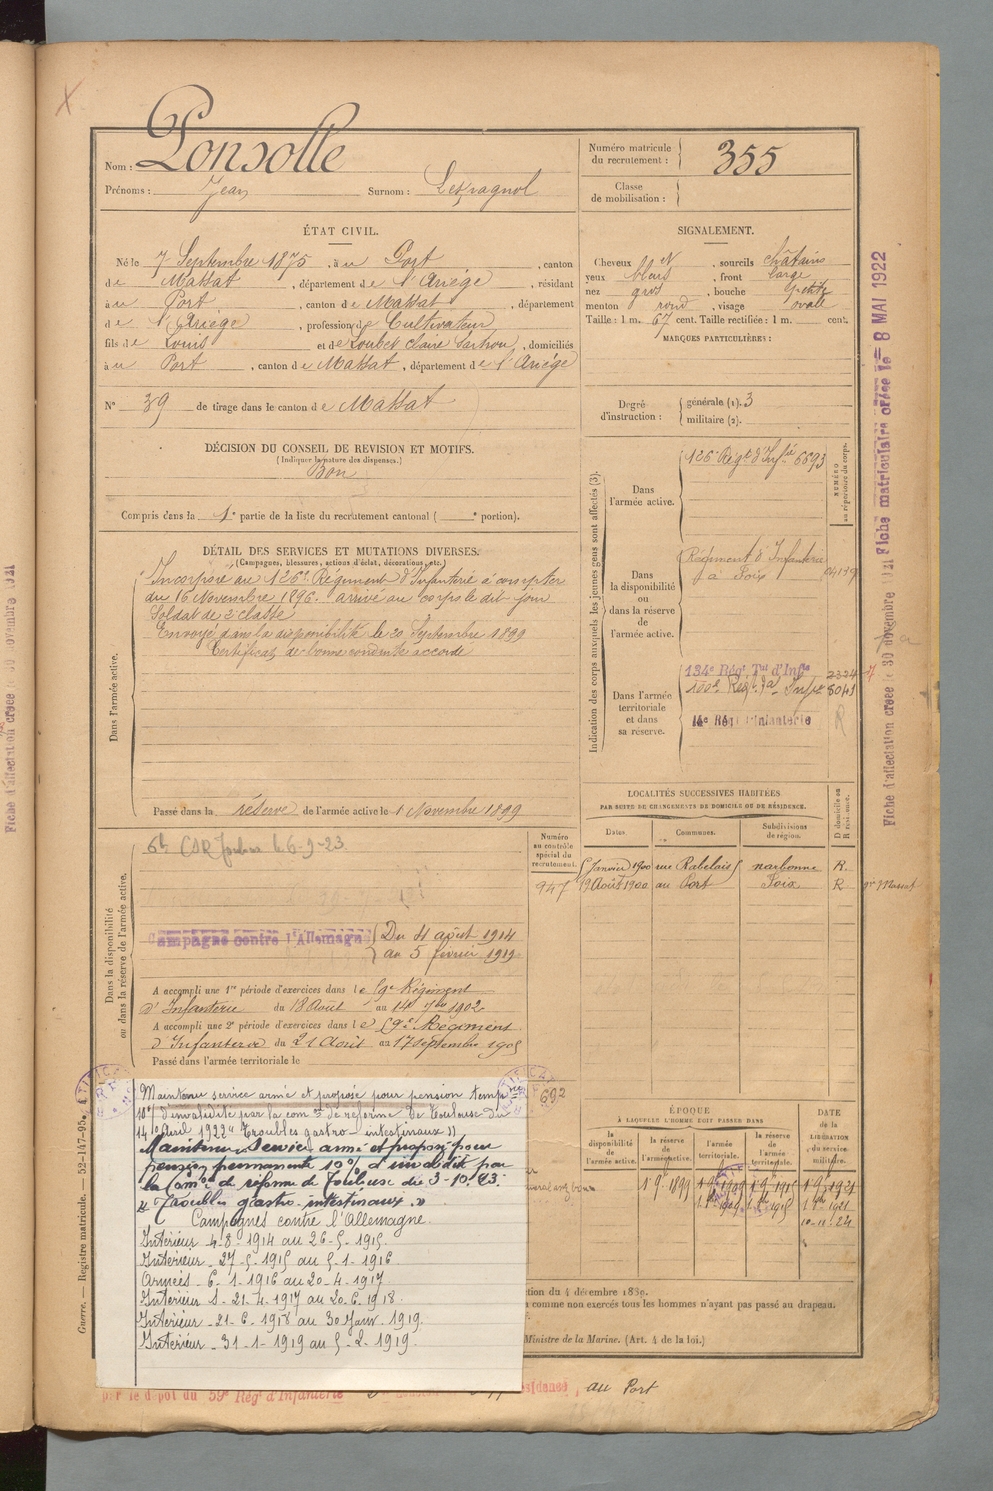 Nom : Ponsolle
Prénoms : Jean Surnom : Lespagnol
Numéro matricule du recrutement : 355
Classe de mobilisation :
ÉTAT CIVIL.
Né le 7 Septembre 1875, à u Port, canton
de Massat, département de l'Ariège, résidant
à u Port, canton de Massat, département
de l'Ariège, profession de Cultivateur
fils de Louis et de Loubet Claire, domiciliés
à u Port, canton de Massat, département de l'Ariège
N° 39 de tirage dans le canton de Massat
SIGNALEMENT.
Cheveux, sourcils châtains
yeux bleus, front large
nez gros, bouche petite
menton rond, visage ovale
Taille : 1 m. 67 cent. Taille rectifiée : 1 m. cent.
MARQUES PARTICULIÈRES :
Degré d'instruction : générale (1). 3
militaire (2).
DÉCISION DU CONSEIL DE REVISION ET MOTIFS.
(Indiquer la nature des dispenses.)
Bon
Compris dans la 1e partie de la liste du recrutement cantonal ( e portion).
DÉTAIL DES SERVICES ET MUTATIONS DIVERSES.
(Campagnes, blessures, actions d'éclat, décorations, etc.)
Dans l'armée active.
Incorporé au 126e Régiment d'Infanterie à compter
du 16 Novembre 1896. arrivé au corps le dit jour
Soldat de 2e classe
Envoyé dans la disponibilité le 20 Septembre 1899
Certificat de bonne conduite accordé
Passé dans la réserve de l'armée active le 1 Novembre 1899
Indication des corps auxquels les jeunes gens sont affectés (3).
NUMÉRO au répertoire du corps.
Dans l'armée active.
126e Régt d'Infie 6693
Dans la disponibilité ou dans la réserve de l'armée active.
Régiment d'Infanterie
à Foix
Dans l'armée territoriale et dans sa réserve.
134e Régt Tal d'Infie 2324
14e Régt d'Infanterie
LOCALITÉS SUCCESSIVES HABITÉES
PAR SUITE DE CHANGEMENTS DE DOMICILE OU DE RÉSIDENCE.
Dates. Communes. Subdivisions de région. D domicile ou R résidence.
Janvier 1900 rue Rabelais narbonne R.
19 Août 1900 au Port Foix R
Dans la disponibilité ou dans la réserve de l'armée active.
Numéro au contrôle spécial du recrutement.
947
Campagne contre l'Allemagne Du 4 août 1914
au 5 février 1919
A accompli une 1re période d'exercices dans le 59e Régiment
d'Infanterie du 18 Août au 14 7bre 1902
A accompli une 2e période d'exercices dans le 59e Régiment
d'Infanterie du 21 Août au 17 Septembre 1905
Passé dans l'armée territoriale le
692
Maintenu service armé et proposé pour pension tempre
10% d'invalidité par la comon de réforme de Toulouse du
14 Avril 1922 "Troubles gastro-intestinaux"
Maintenu Service armé et proposé pour
pension permanente 10% d'invalidité par
la Comon de réforme de Toulouse du 3-10-23.
"Troubles gastro-intestinaux."
Campagnes contre l'Allemagne
Intérieur - 4-8-1914 au 26-5-1915.
Intérieur - 27-5-1915 au 5-1-1916
Armées - 6-1-1916 au 20-4-1917
Intérieur - 21-4-1917 au 20-6-1918
Intérieur - 21-6-1918 au 30 Janv. 1919.
Intérieur - 31-1-1919 au 5-2-1919.
ÉPOQUE
À LAQUELLE L'HOMME DOIT PASSER DANS
la disponibilité de l'armée active. la réserve de l'armée active. l'armée territoriale. la réserve de l'armée territoriale. DATE de la LIBÉRATION du service militaire.
1-9-1899 1-9-1909 1-9-1915 1-9-1921
10-11-24
tion du 4 décembre 1889.
comme non exercés tous les hommes n'ayant pas passé au drapeau.
Ministre de la Marine. (Art. 4 de la loi.)
par le dépôt du 59e Régt d'Infanterie
résidence, au Port
Guerre. — Registre matricule. — 52-147-95.
Fiche matriculaire créée le 8 MAI 1922
Fiche d'affectation créée le 30 novembre 1921
Fiche d'affectation créée le 30 novembre 1921